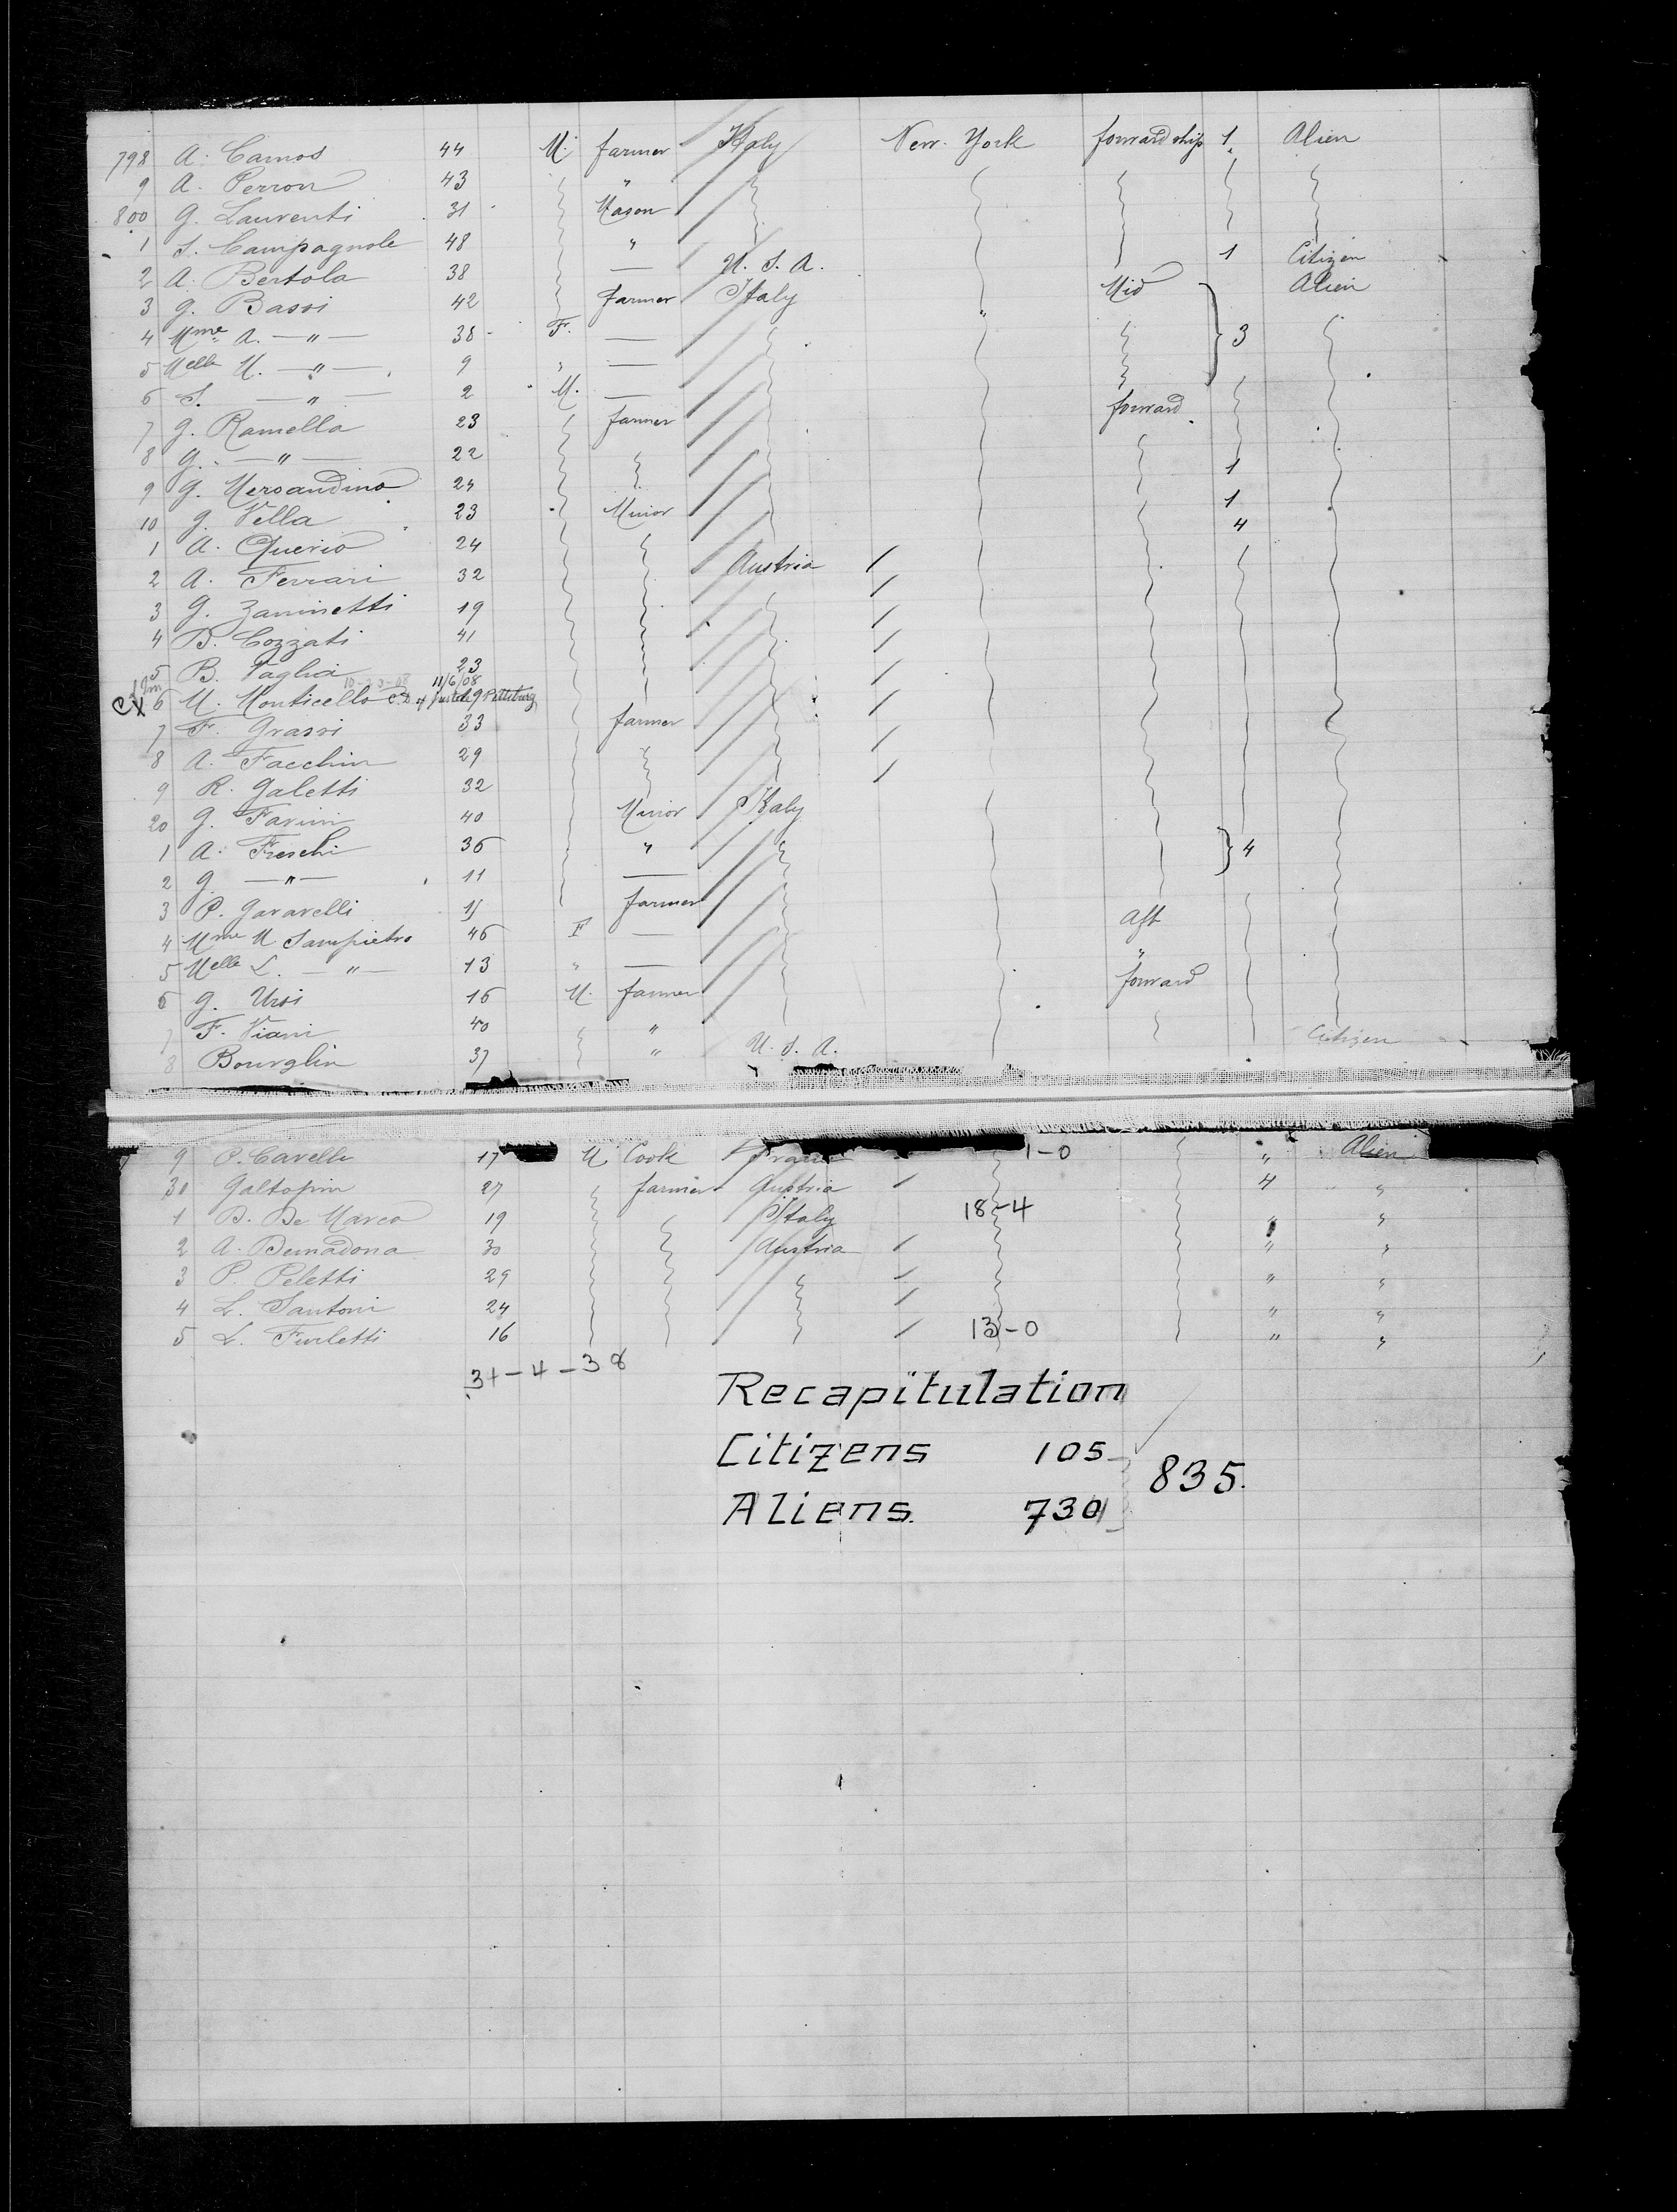 798 A. Camos 44 M. farmer Italy New. York forward ship 1 Alien
9 A. Perron 43 "
800 G. Laurenti 31 Mason
1 S. Campagnole 48 "
2 A. Bertola 38 — U. S. A. 1 Citizen
3 G. Bassi 42 farmer Italy " Mid Alien
4 Mme A. — " — 38 F. — 3
5 Melle M. — " — 9 " —
6 S. — " — 2 M. —
7 G. Ramella 23 farmer forward
8 G. — " — 22
9 G. Meroandino 24 1
10 G. Vella 23 Minor 1
1 A. Querio 24 4
2 A. Ferrari 32 Austria
3 G. Zaninetti 19
4 B. Cozzati 41
5 B. Vaglia 23
6 M. Monticello 10-23-08 11/6/08 Pittsburg
7 F. Grassi 33 farmer
8 A. Facchin 29
9 R. Galetti 32
20 G. Favini 40 Minor Italy
1 A. Freschi 36 " 4
2 G. — " — 11 —
3 P. Gavarelli 15 farmer
4 Mme M. Sampietro 46 F — Aft
5 Melle L. — " — 13 " — "
6 G. Ursi 16 M. farmer forward
7 F. Viani 40 "
8 Bourglin 37 " U. S. A. Citizen
9 P. Cavelli 17 M Cook France 1-0 " Alien
30 Galtopin 27 farmer Austria 4 "
1 B. De Marco 19 Italy 18-4 " "
2 A. Bernadona 30 Austria " "
3 P. Peletti 29 " "
4 L. Santoni 24 " "
5 L. Furletti 16 13-0 " "
34-4-38
Recapitulation
Citizens 105
835.
Aliens. 730